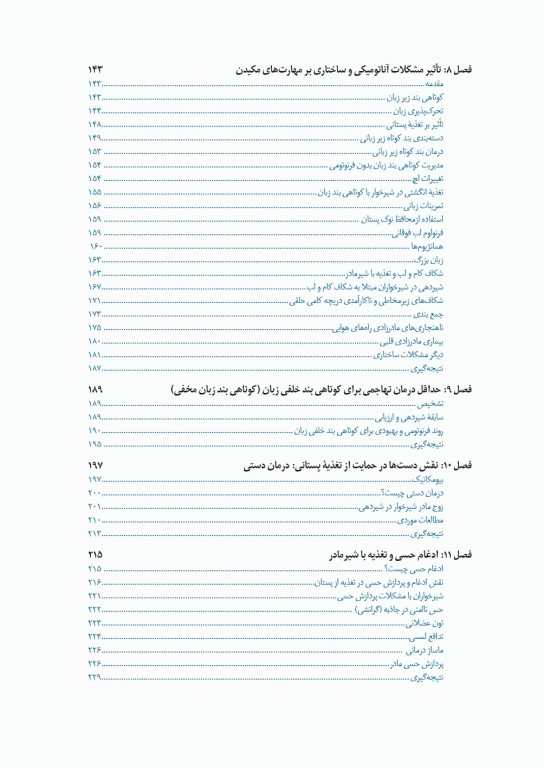 فصل ۸: تأثیر مشکلات آناتومیکی و ساختاری بر مهارت‌های مکیدن ۱۴۳
مقدمه ۱۴۳
کوتاهی بند زیر زبان ۱۴۳
تحرک‌پذیری زبان ۱۴۴
تأثیر بر تغذیهٔ پستانی ۱۴۸
دسته‌بندی بند کوتاه زیر زبانی ۱۴۹
درمان بند کوتاه زیر زبانی ۱۵۳
مدیریت کوتاهی بند زبان بدون فرنوتومی ۱۵۴
تغییرات لچ ۱۵۴
تغذیهٔ انگشتی در شیرخوار با کوتاهی بند زبان ۱۵۵
تمرینات زبانی ۱۵۶
استفاده ازمحافظ نوک پستان ۱۵۹
فرنولوم لب فوقانی ۱۵۹
همانژیوم‌ها ۱۶۰
زبان بزرگ ۱۶۳
شکاف کام و لب و تغذیه با شیرمادر ۱۶۳
شیردهی در شیرخواران مبتلا به شکاف کام و لب ۱۶۷
شکاف‌های زیرمخاطی و ناکارآمدی دریچه کامی حلقی ۱۷۱
جمع بندی ۱۷۳
ناهنجاری‌های مادرزادی راه‌های هوایی ۱۷۵
بیماری مادرزادی قلبی ۱۸۰
دیگر مشکلات ساختاری ۱۸۱
نتیجه‌گیری ۱۸۷
فصل ۹: حداقل درمان تهاجمی برای کوتاهی بند خلفی زبان (کوتاهی بند زبان مخفی) ۱۸۹
تشخیص ۱۸۹
سابقهٔ شیردهی و ارزیابی ۱۸۹
روند فرنوتومی و بهبودی برای کوتاهی بند خلفی زبان ۱۹۰
نتیجه‌گیری ۱۹۵
فصل ۱۰: نقش دست‌ها در حمایت از تغذیهٔ پستانی: درمان دستی ۱۹۷
بیومکانیک ۱۹۷
درمان دستی چیست؟ ۲۰۰
زوج مادر شیرخوار در شیردهی ۲۰۱
مطالعات موردی ۲۱۰
نتیجه‌گیری ۲۱۳
فصل ۱۱: ادغام حسی و تغذیه با شیرمادر ۲۱۵
ادغام حسی چیست؟ ۲۱۵
نقش ادغام و پردازش حسی در تغذیه از پستان ۲۱۶
شیرخواران با مشکلات پردازش حسی ۲۲۱
حس ناامنی در جاذبه (گرانشی) ۲۲۲
تون عضلانی ۲۲۳
تدافع لمسی ۲۲۴
ماساژ درمانی ۲۲۶
پردازش حسی مادر ۲۲۶
نتیجه‌گیری ۲۲۹